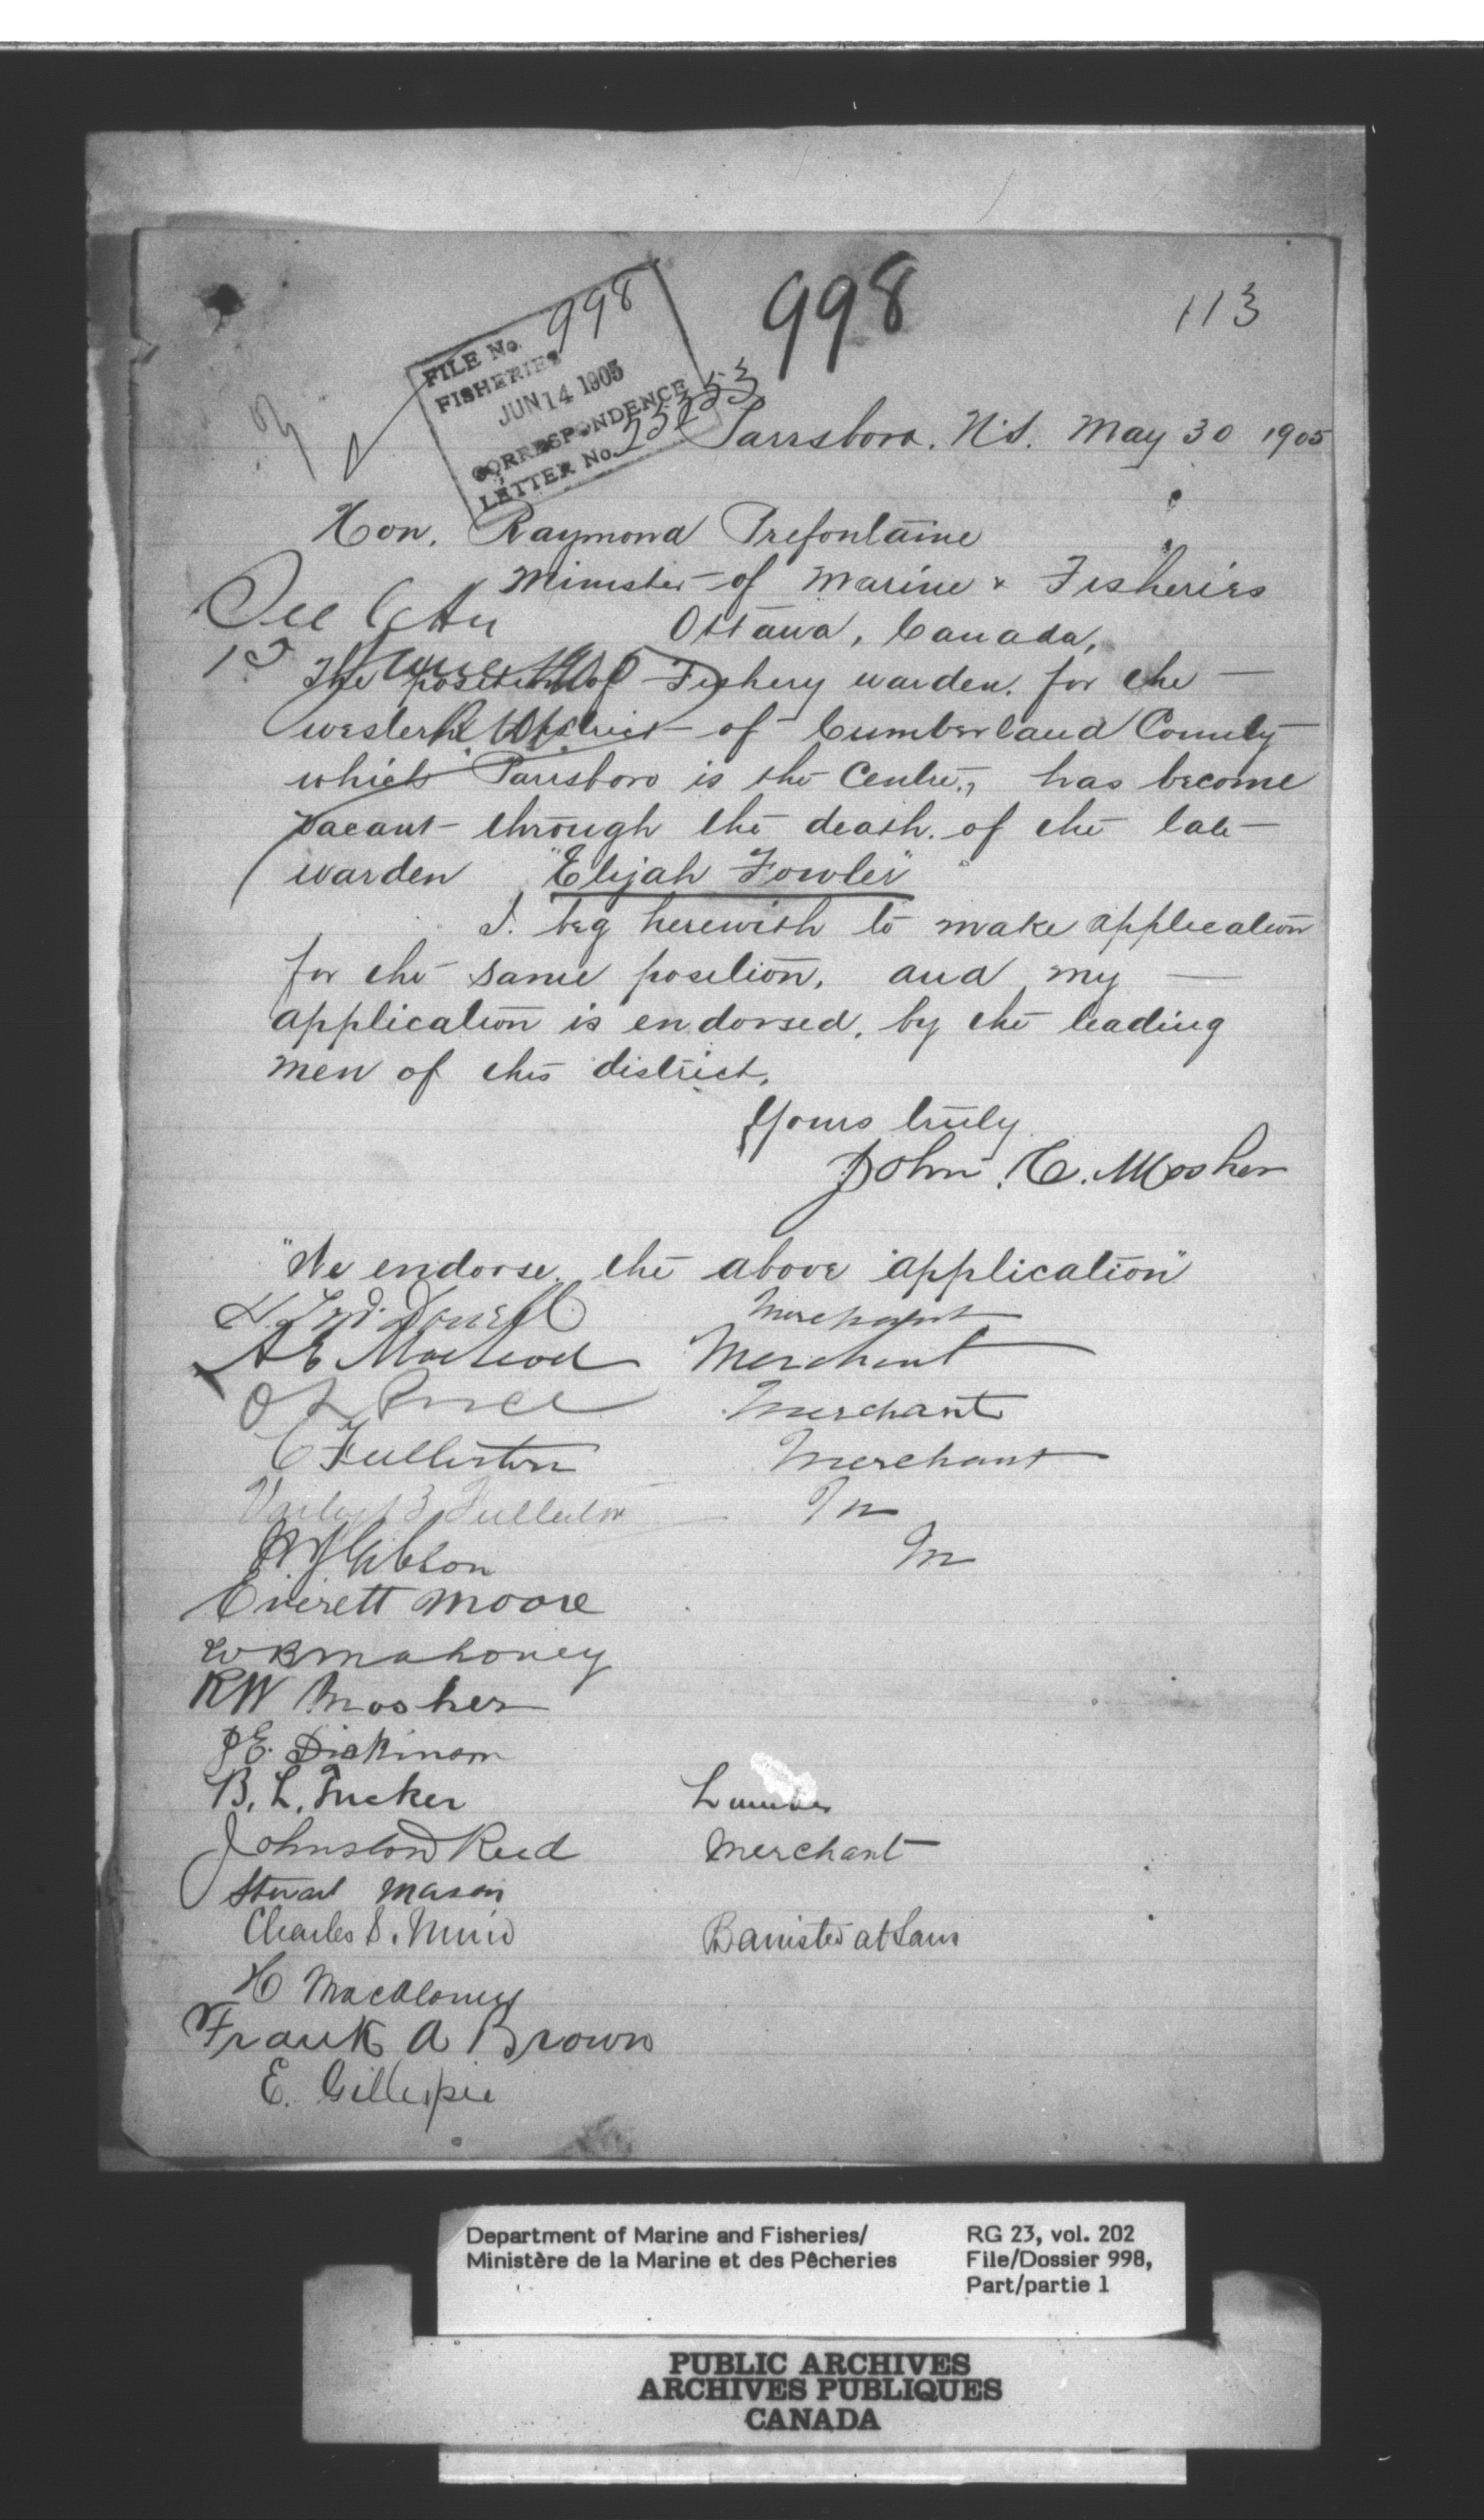 998
113
FILE No. 998
FISHERIES
JUN 14 1905
CORRESPONDENCE
LETTER No.
Parrsboro. N.S. May 30 1905
Hon. Raymond Prefontaine
Minister of Marine & Fisheries
Ottawa, Canada,
The position of Fishery warden. for the
western District of Cumberland County
which Parrsboro is the Centre, has become
vacant through the death. of the late
warden "Elijah Fowler"
I. beg herewith to make application
for the same position, and my
application is endorsed, by the leading
men of this district,
Yours truly
John. C. Mosher
"We endorse the above application"
Merchant
A E MacLeod Merchant
O L Price Merchant
C Fullerton Merchant
B Fullerton M
Gibson M
Everett Moore
W B Mahoney
RW Mosher
J E. Dickinson
B. L. Tucker Lumber
Johnston Reed Merchant
Stuart Mason
Charles S. Muir Barrister at Law
H Macaloney
Frank A Brown
E. Gillespie
Department of Marine and Fisheries/ RG 23, vol. 202
Ministère de la Marine et des Pêcheries File/Dossier 998,
Part/partie 1
PUBLIC ARCHIVES
ARCHIVES PUBLIQUES
CANADA